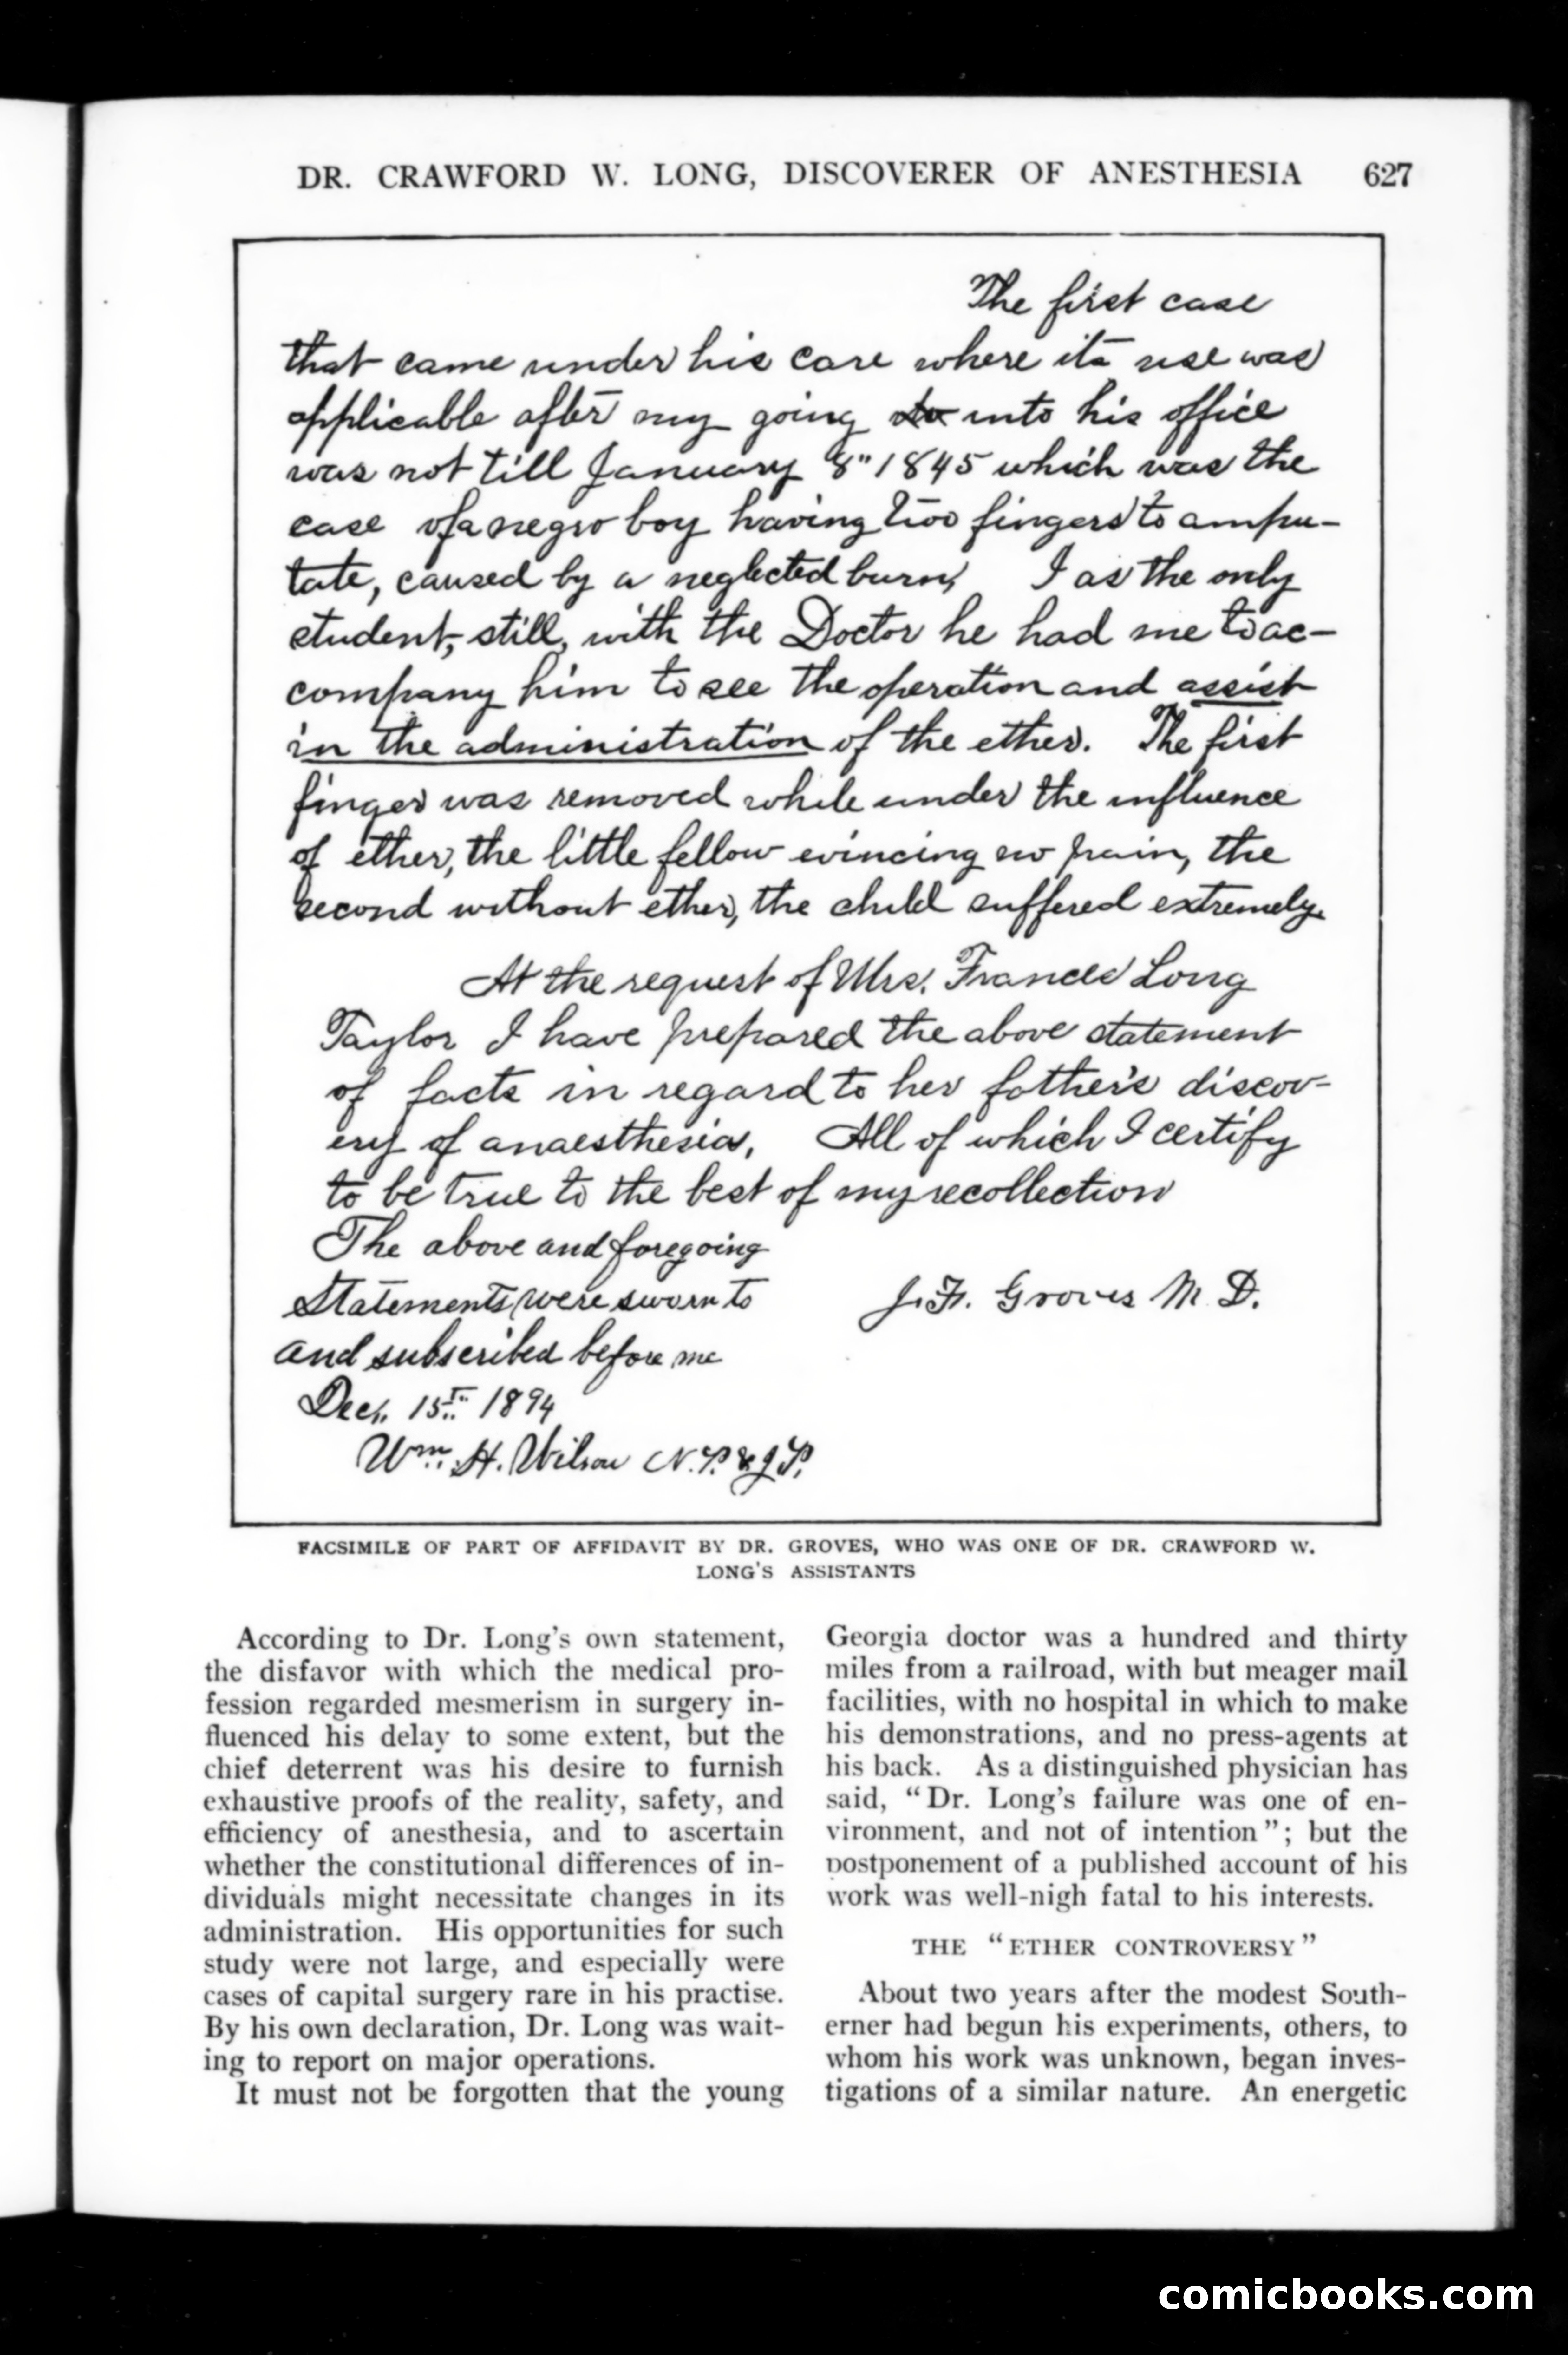 DR. CRAWFORD W. LONG, DISCOVERER OF ANESTHESIA 627
The first case
that came under his care where its use was
applicable after my going to into his office
was not till January 8" 1845 which was the
case of a negro boy having two fingers to ampu-
tate, caused by a neglected burn, I as the only
student, still, with the Doctor he had me to ac-
company him to see the operation and assist
in the administration of the ether. The first
finger was removed while under the influence
of ether, the little fellow evincing no pain, the
second without ether, the child suffered extremely.
At the request of Mrs. Frances Long
Taylor I have prepared the above statement
of facts in regard to her father's discov-
ery of anaesthesia. All of which I certify
to be true to the best of my recollection
The above and foregoing
Statements were sworn to
J. F. Groves M. D.
and subscribed before me
Dec. 15th 1894
Wm. H. Wilson N.P. & J.P.
FACSIMILE OF PART OF AFFIDAVIT BY DR. GROVES, WHO WAS ONE OF DR. CRAWFORD W.
LONG'S ASSISTANTS
According to Dr. Long's own statement,
the disfavor with which the medical pro-
fession regarded mesmerism in surgery in-
fluenced his delay to some extent, but the
chief deterrent was his desire to furnish
exhaustive proofs of the reality, safety, and
efficiency of anesthesia, and to ascertain
whether the constitutional differences of in-
dividuals might necessitate changes in its
administration. His opportunities for such
study were not large, and especially were
cases of capital surgery rare in his practise.
By his own declaration, Dr. Long was wait-
ing to report on major operations.
It must not be forgotten that the young
Georgia doctor was a hundred and thirty
miles from a railroad, with but meager mail
facilities, with no hospital in which to make
his demonstrations, and no press-agents at
his back. As a distinguished physician has
said, "Dr. Long's failure was one of en-
vironment, and not of intention"; but the
postponement of a published account of his
work was well-nigh fatal to his interests.
THE "ETHER CONTROVERSY"
About two years after the modest South-
erner had begun his experiments, others, to
whom his work was unknown, began inves-
tigations of a similar nature. An energetic
comicbooks.com